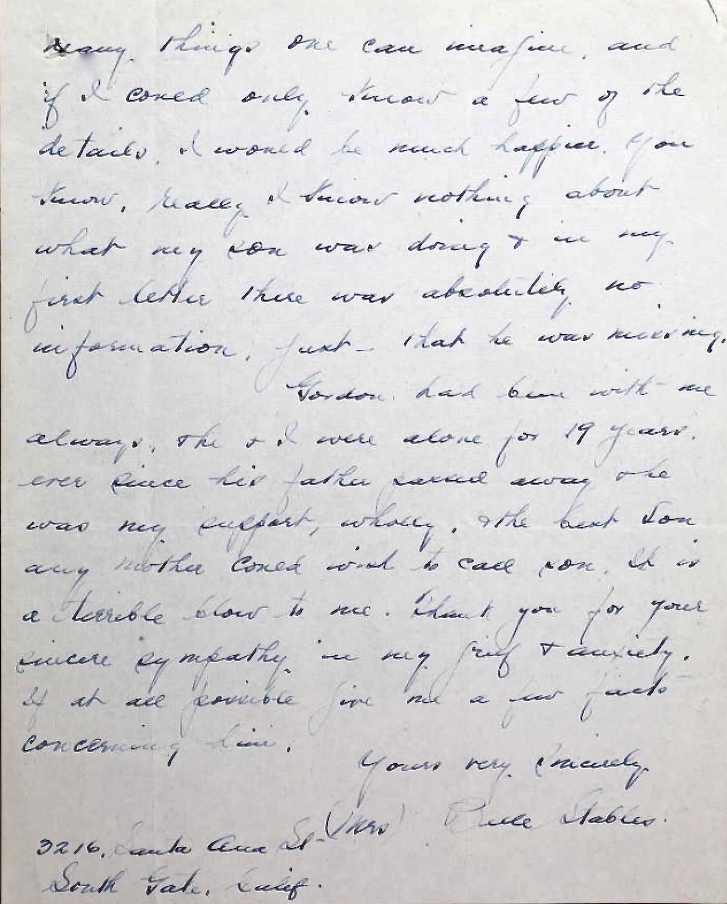 many things one can imagine, and
if I could only know a few of the
details, I would be much happier. You
know, really I know nothing about
what my son was doing & in my
first letter there was absolutely no
information. Just - that he was missing.
Gordon had been with me
always, & he & I were alone for 19 years.
ever since his father passed away & he
was my support, wholly, & the best son
any mother could wish to call son. It is
a terrible blow to me. Thank you for your
sincere sympathy in my grief & anxiety.
If at all possible give me a few facts
concerning him.
Yours very sincerely
(Mrs) Stables.
3216, Santa Ana St-
South Gate, Calif.